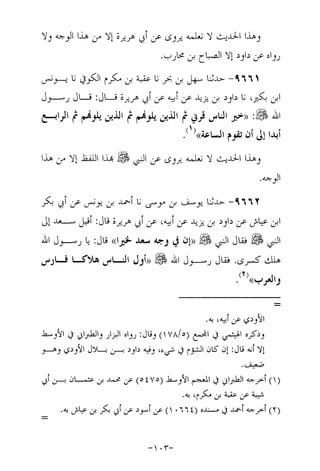 وهذا الحديث لا نعلمه يروى عن أبي هريرة إلا من هذا الوجه ولا
رواه عن داود إلا الصباح بن محارب.
٩٦٦١- حدثنا سهل بن بحر نا عقبة بن مكرم الكوفي نا يـــونس
ابن بكير، نا داود بن يزيد عن أبيه عن أبي هريرة قــال: قــال رســول
الله ﷺ: «خير الناس قرني ثم الذين يلونهم ثم الذين يلونهم ثم الرابــع
أبدا إلى أن تقوم الساعة»(١).
وهذا الحديث لا نعلمه يروى عن النبي ﷺ بهذا اللفظ إلا من هذا
الوجه.
٩٦٦٢- حدثنا يوسف بن موسى نا أحمد بن يونس عن أبي بكر
ابن عياش عن داود بن يزيد عن أبيه، عن أبي هريرة قال: أقبل سـعد إلى
النبي ﷺ فقال النبي ﷺ «إن في وجه سعد لخيرا» قال: يا رســول الله
هلك كسرى. فقال رســول الله ﷺ «أول النــاس هلاكــا فــارس
والعرب»(٢).
=
الأودي عن أبيه، به.
وذكره الهيثمي في المجمع (١٧٨/٥) وقال: رواه البزار والطبراني في الأوسط
إلا أنه قال: إن كان الشؤم في شيء، وفيه داود بــن يــلال الأودي وهــو
ضعيف.
(١) أخرجه الطبراني في المعجم الأوسط (٥٤٧٥) عن محمد بن عثمــان بــن أبي
شيبة عن عقبة بن مكرم، به.
(٢) أخرجه أحمد في مسنده (١٠٦٦٤) عن أسود عن أبي بكر بن عياش به.
=
-١٠٣-